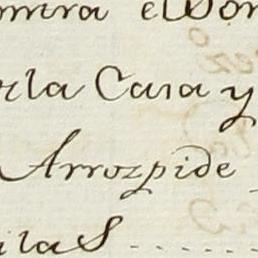 ontra el Don
la Casa y
Arrozpide
ilas